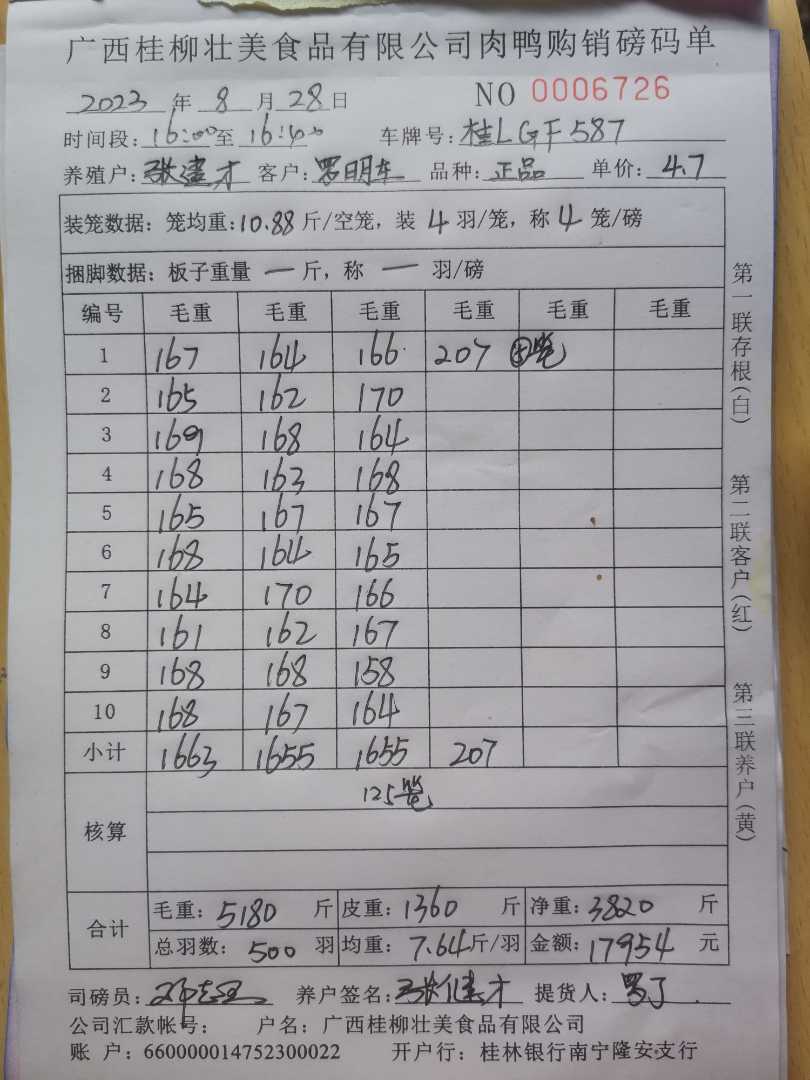 广西桂柳壮美食品有限公司肉鸭购销磅码单
2023 年 8 月 28 日 NO 0006726
时间段: 16:00 至 16:40 车牌号: 桂LGF587
养殖户: 张建才 客户: 罗明车 品种: 正品 单价: 4.7
装笼数据: 笼均重: 10.88 斤/空笼, 装 4 羽/笼, 称 4 笼/磅
捆脚数据: 板子重量 一 斤, 称 一 羽/磅
编号 毛重 毛重 毛重 毛重 毛重 毛重
1 167 164 166 207 笼
2 165 162 170
3 169 168 164
4 168 163 168
5 165 167 167
6 168 164 165
7 164 170 166
8 161 162 167
9 168 168 158
10 168 167 164
小计 1663 1655 1655 207
核算 125笼
合计 毛重: 5180 斤 皮重: 1360 斤 净重: 3820 斤
总羽数: 500 羽 均重: 7.64 斤/羽 金额: 17954 元
司磅员: 养户签名: 张健才 提货人:
公司汇款帐号: 户名: 广西桂柳壮美食品有限公司
账 户: 660000014752300022 开户行: 桂林银行南宁隆安支行
第一联存根(白) 第二联客户(红) 第三联养户(黄)